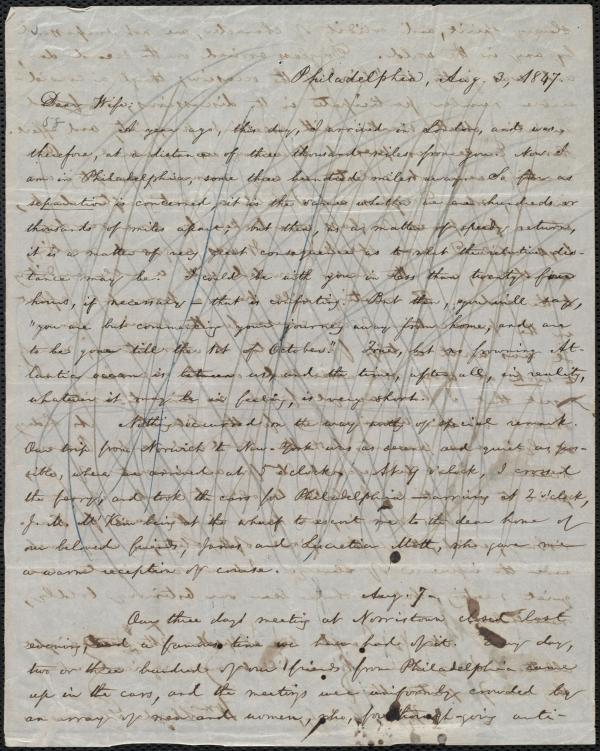 Philadelphia, Aug. 3, 1847.
Dear Wife:
A year ago, this day, I arrived in London, and was,
therefore, at a distance of three thousand miles from you. Now I
am in Philadelphia, some three hundred miles away. So far as
separation is concerned, it is the same whether we are hundreds or
thousands of miles apart; but then, as a matter of speedy return,
it is a matter of very great consequence as to what the relative dis-
tance may be. I could be with you in less than twenty-four
hours, if necessary — that is comforting. But then, you will say,
"you are but commencing your journey away from home, and are
to be gone till the 1st of October." True, but no frowning At-
lantic ocean is between us, and the time, after all, in reality,
whatever it may be in feeling, is very short.
Nothing occurred on the way worthy of special remark.
Our trip from Norwich to New-York was as serene and quiet as pos-
sible, where we arrived at 5 o'clock. At 9 o'clock, I crossed
the ferry, and took the cars for Philadelphia — arriving at 2 o'clock,
J. M. M'Kim being at the wharf to escort me to the dear home of
our beloved friends, James and Lucretia Mott, who gave me
a warm reception of course.
Aug. 7.
Our three days meeting at Norristown closed last
evening, and a famous time we have had of it. Every day,
two or three hundred of our friends from Philadelphia came
up in the cars, and the meetings were uniformly crowded by
an array of men and women, who, for thorough-going anti-